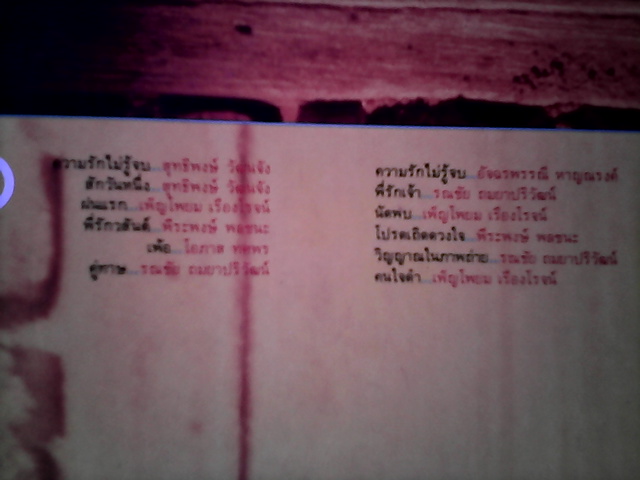 ความรักไม่รู้จบ...สุทธิพงษ์ วัฒนจัง
สักวันหนึ่ง...สุทธิพงษ์ วัฒนจัง
ฝนแรก...เพ็ญโพยม เรืองโรจน์
พี่รักวสันต์...พีระพงษ์ พลชนะ
เพ้อ...โอภาส ทศพร
คู่ทาษ...รณชัย ถมยาปริวัฒน์
ความรักไม่รู้จบ...อัจฉรพรรณี หาญณรงค์
พี่รักเจ้า...รณชัย ถมยาปริวัฒน์
นัดพบ...เพ็ญโพยม เรืองโรจน์
โปรดเถิดดวงใจ...พีระพงษ์ พลชนะ
วิญญาณในภาพถ่าย...รณชัย ถมยาปริวัฒน์
คนใจดำ...เพ็ญโพยม เรืองโรจน์